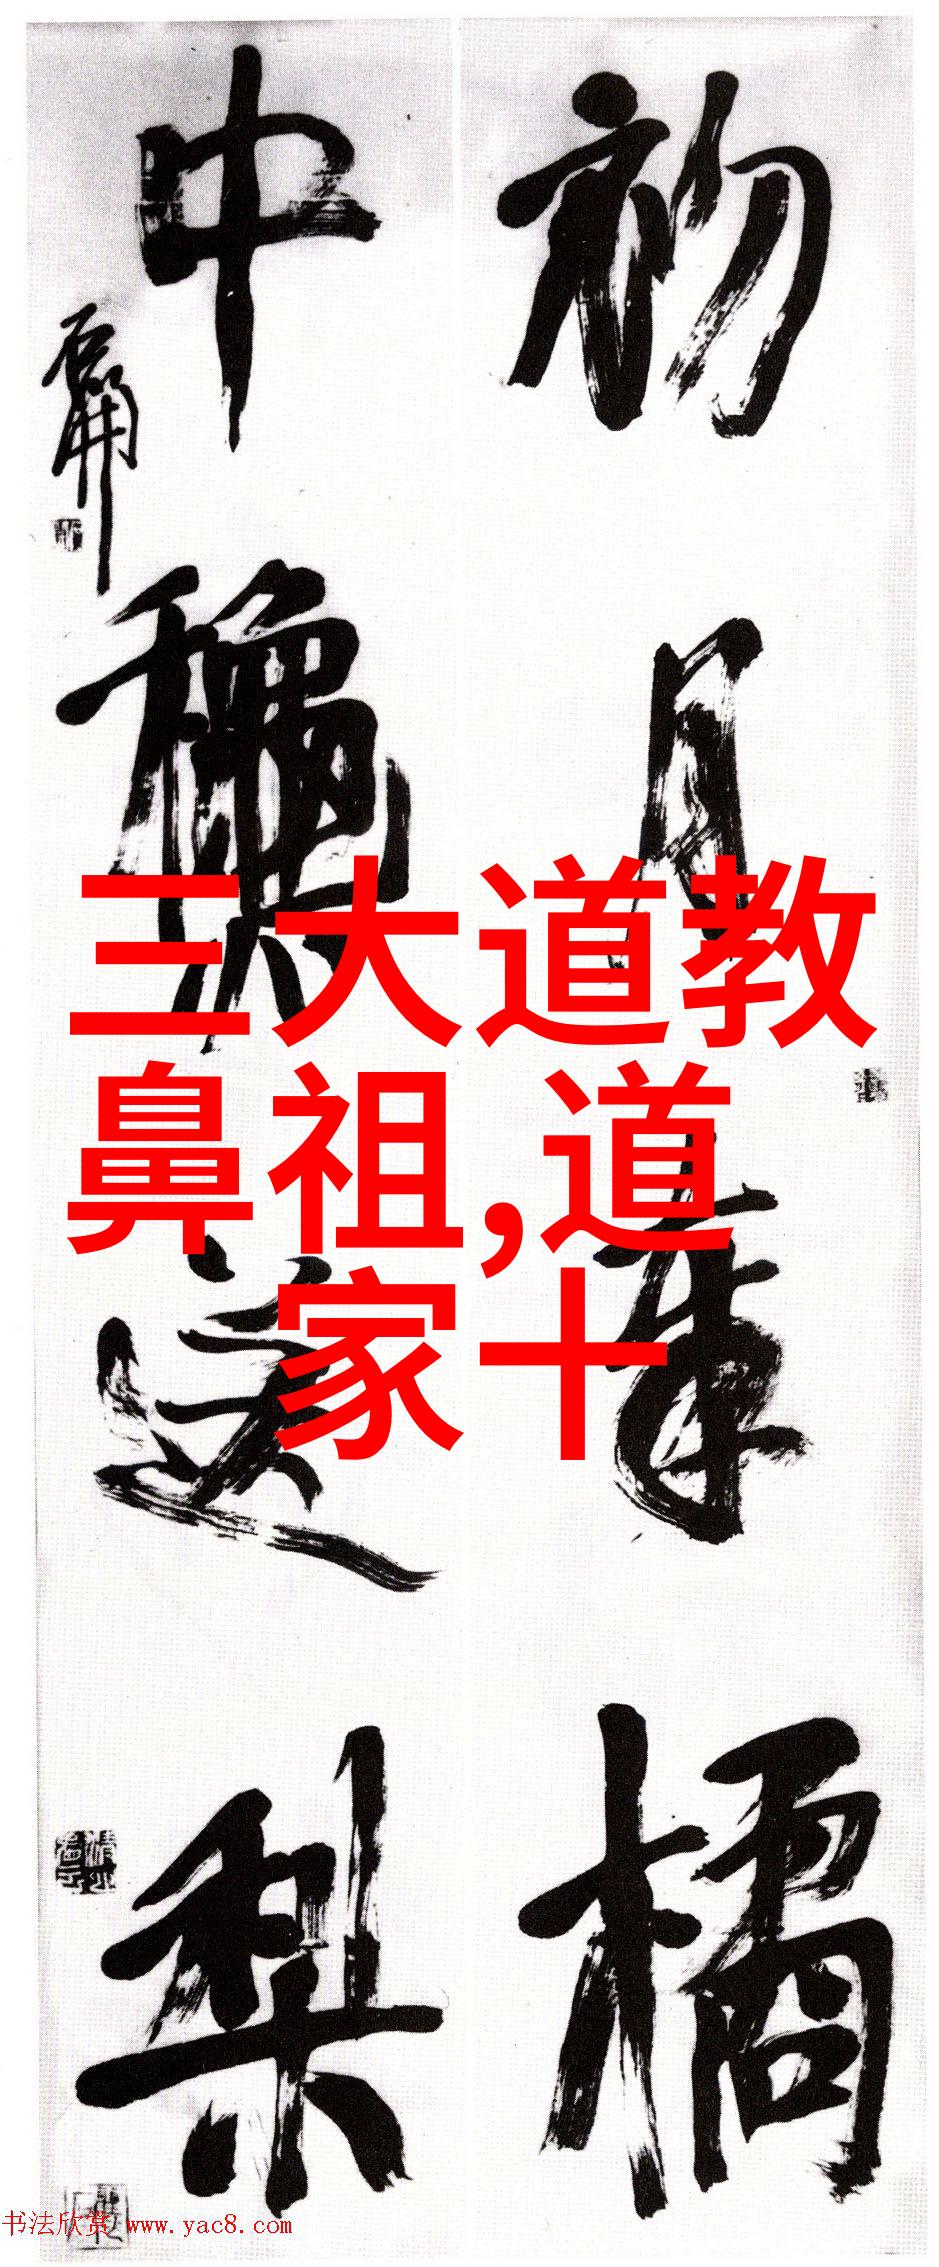 初月橘
中穐送梨
三大道教
鼻祖,道
家十
书法欣赏 www.yac8.com